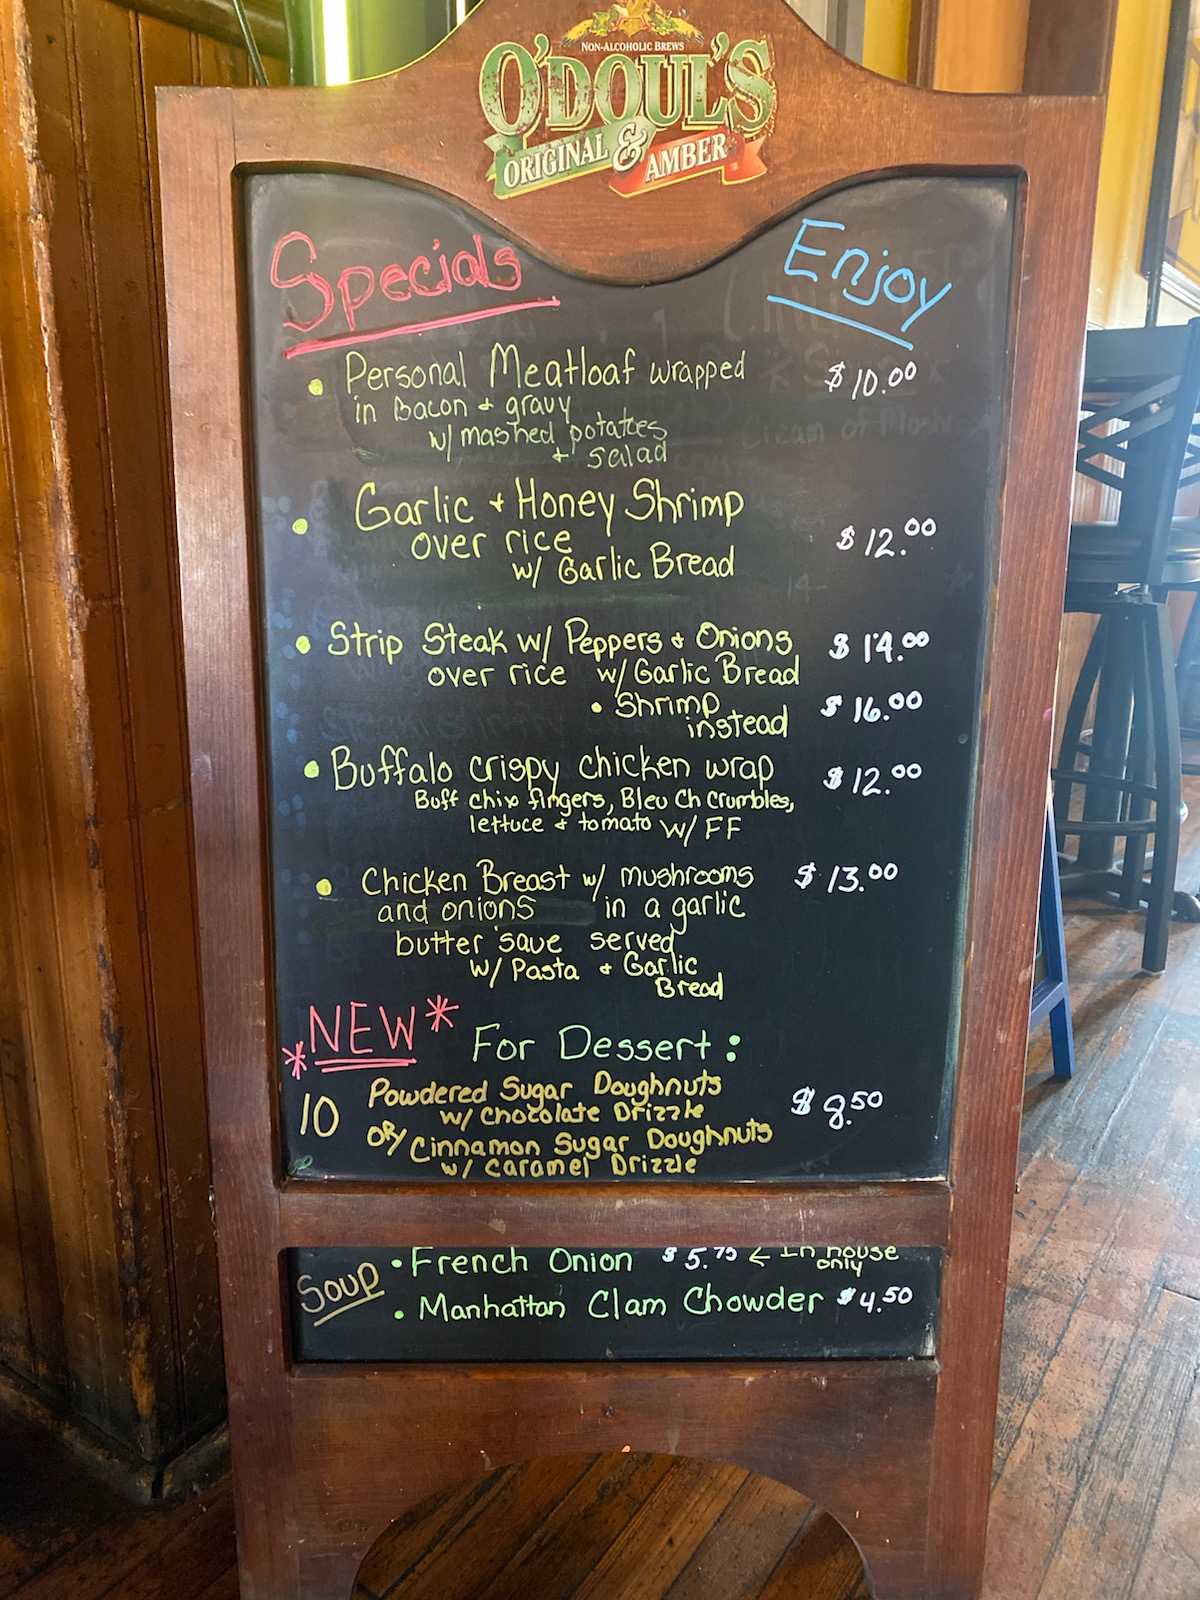 NON-ALCOHOLIC BREWS
O'DOUL'S
ORIGINAL & AMBER
Specials Enjoy
• Personal Meatloaf wrapped $10.00
in Bacon + gravy
w/ mashed potatoes
+ salad
• Garlic + Honey Shrimp
over rice $12.00
w/ Garlic Bread
• Strip Steak w/ Peppers + Onions $14.00
over rice w/ Garlic Bread
• Shrimp $16.00
instead
• Buffalo crispy chicken wrap $12.00
Buff chix fingers, Bleu Ch Crumbles,
lettuce + tomato w/ FF
• Chicken Breast w/ mushrooms $13.00
and onions in a garlic
butter saue served
w/ Pasta + Garlic
Bread
*NEW* For Dessert:
10 Powdered Sugar Doughnuts $8.50
w/ Chocolate Drizzle
OR/ Cinnamon Sugar Doughnuts
w/ caramel Drizzle
Soup • French Onion $5.75 ← In house
only
• Manhattan Clam Chowder $4.50